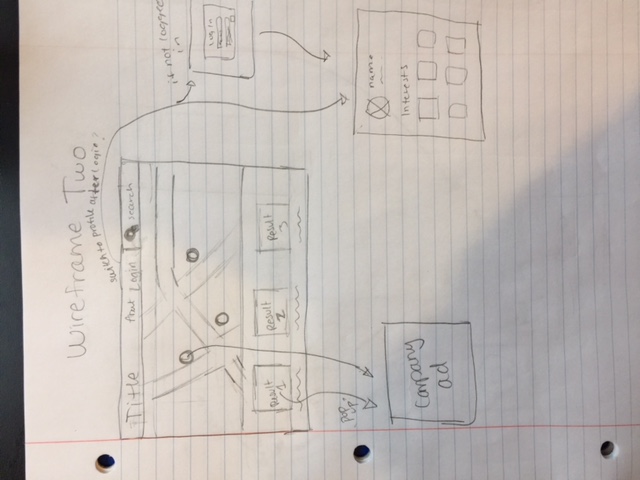 Wireframe Two
switch to profile after login?
Title About Login search
if not logged
in
Log in
Result
1
Result
2
Result
3
pop
up
Company
ad
name
Interests